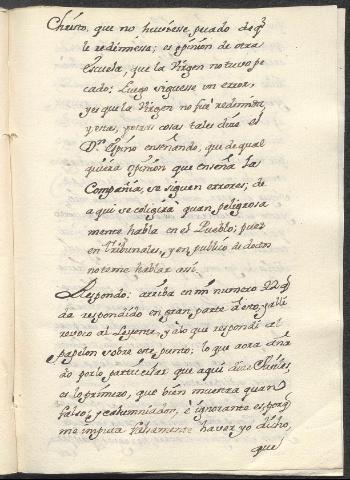 Christo, que no huviesse pecado de q̃
le redimiesse; es opinion de otra
escuela, que la Virgen no tuvo pe
cado; Luego siguese un error,
y es que la Virgen no fue redimida,
y estas, y otras cosas tales dice el
D.r Espino enseñando, que de qual
quiera opinion que enseña la
Compañia, se siguen errores; de
aqui se coligirà quan peligrosa
mente habla en el Pueblo; pues
en Tribunales, y en publico de docto
no teme hablar assi.
Respondo: arriba en mi numero 22 q̃
da respondido en gran parte à esto, y alli
revoco al Leyente, y à lo que respondi al
papelon sobre este punto; lo que aora aña
do por lo particular que aqui dice
es lo primero, que bien muestra quan
falso, y calumniador, è ignorante es, porq̃
me imputa falsamente haver yo dicho,
que